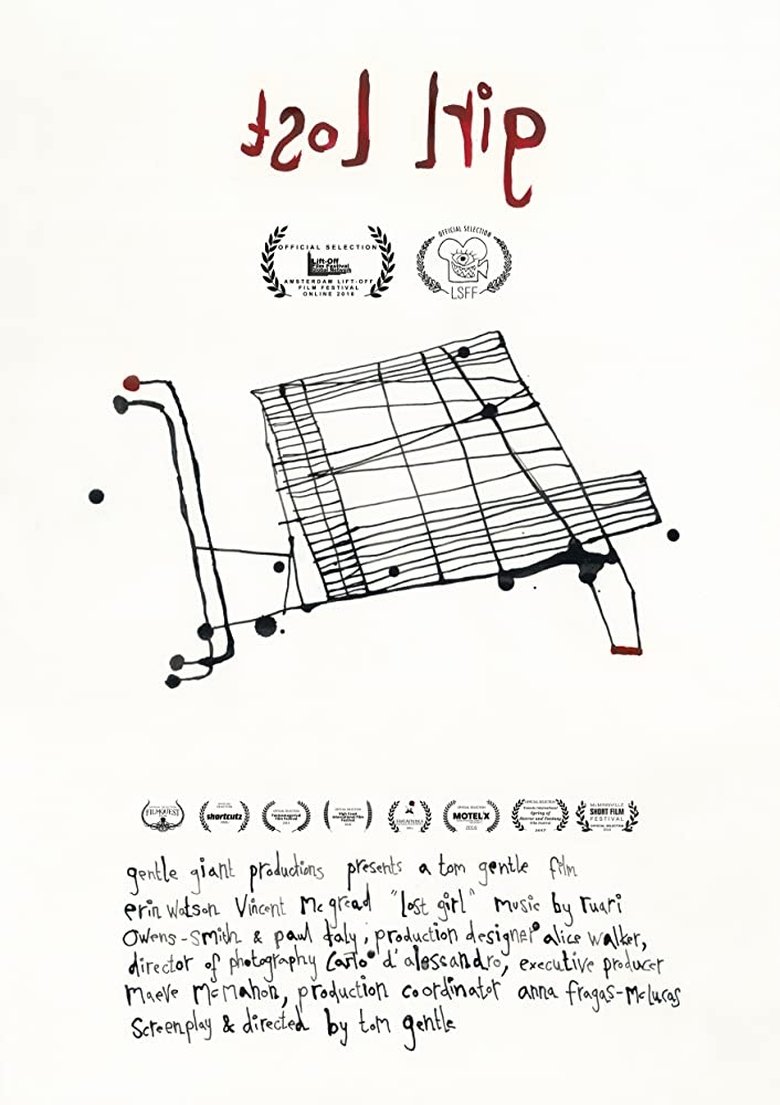 girl Lost
OFFICIAL SELECTION
Lift-Off
Film Festival
Global Network
AMSTERDAM LIFT-OFF
FILM FESTIVAL
ONLINE 2016
OFFICIAL SELECTION
LSFF
FILMQUEST
shortcutz
MOTELX
Spring of
SHORT FILM
FESTIVAL
OFFICIAL SELECTION
2017
gentle giant productions presents a tom gentle film
erin watson Vincent McGread "lost girl" music by ruari
Owens-Smith & paul daly, production designer alice walker,
director of photography Carlo d'alessandro, executive producer
Maeve McMahon, production coordinator anna fragas-McLucas
Screenplay & directed by tom gentle